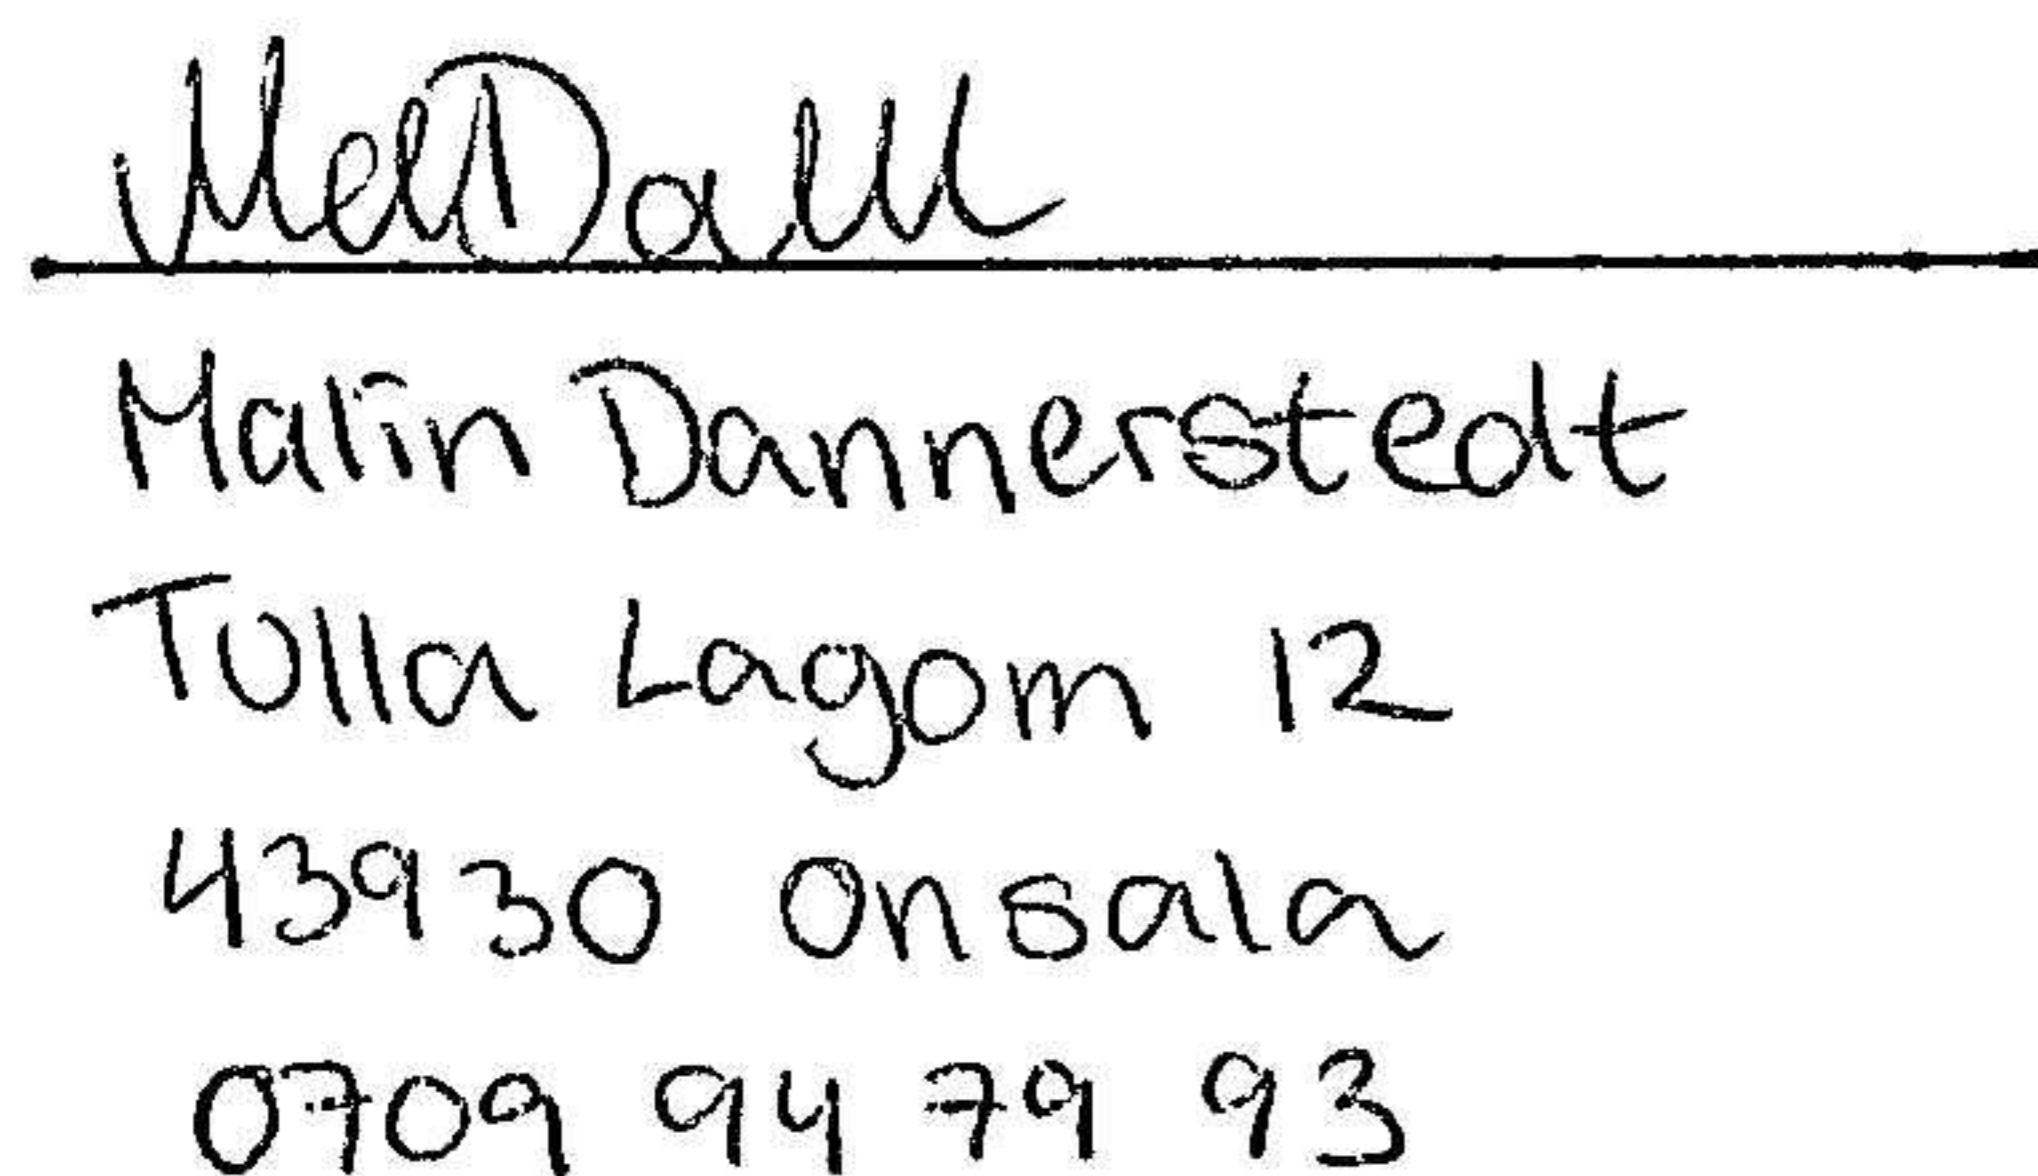 Malin Dannerstedt
Tulla Lagom 12
43930 Onsala
0709 94 79 93